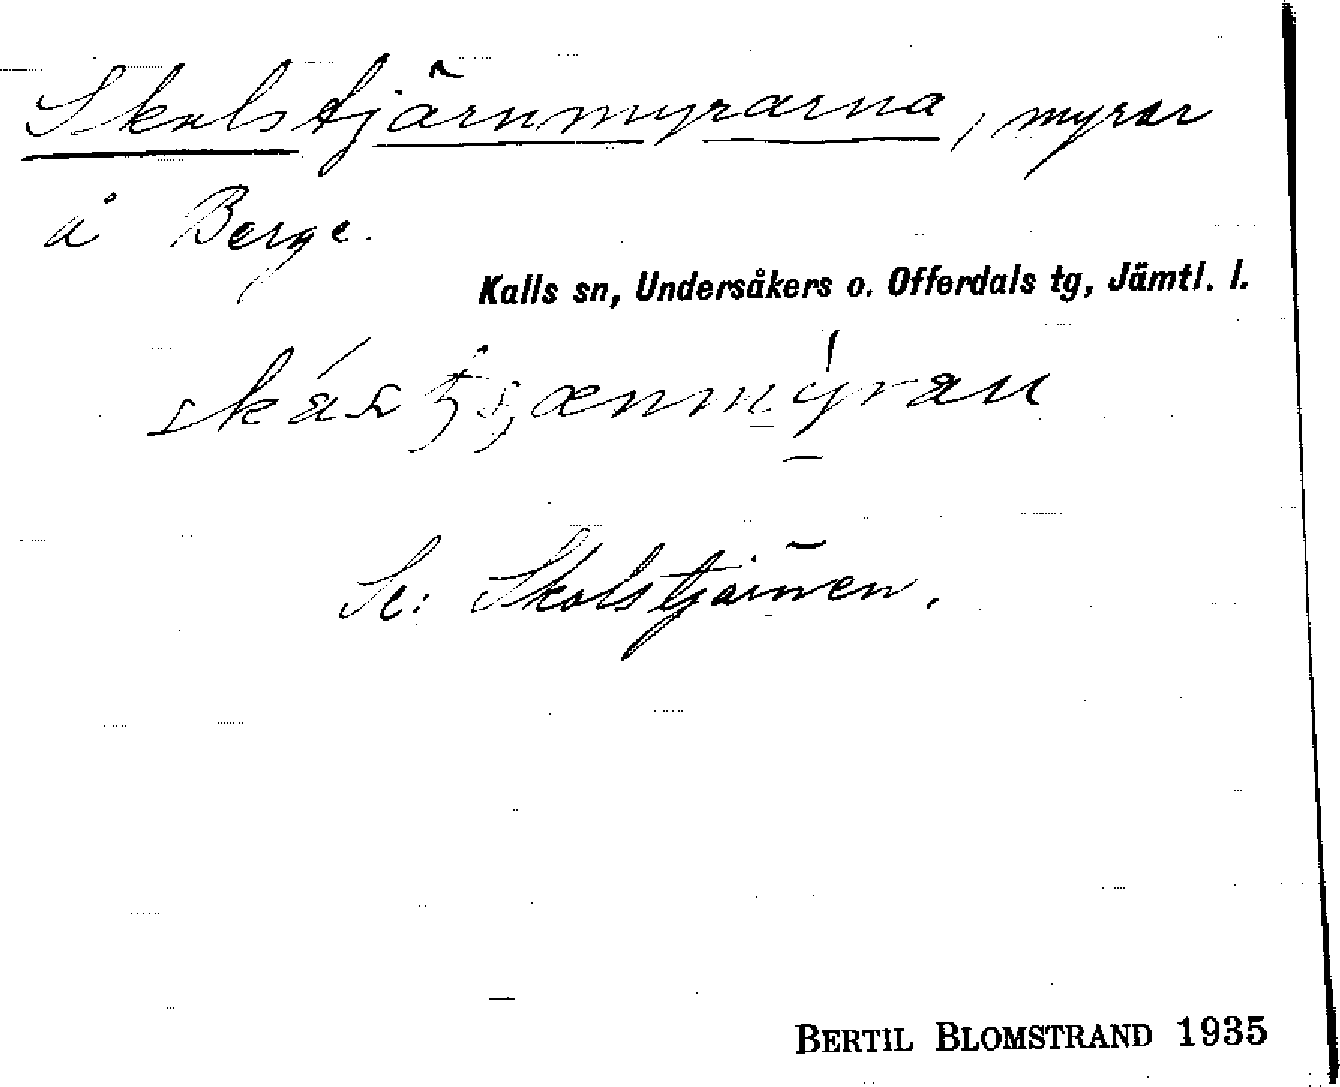 Skalstjärnmyrarna, myrar
å Berge.
Kalls sn, Undersåkers o. Offerdals tg, Jämtl. l.
Se: Skalstjärnen.
BERTIL BLOMSTRAND 1935